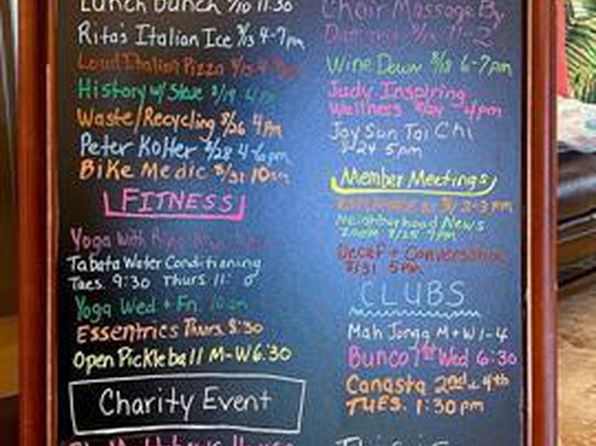 Lunch Bunch 8/10 11:30
Rita's Italian Ice 8/3 4-7pm
Loud Italian Pizza
History w/ Steve 4pm
Waste/Recycling 8/26 4pm
Peter Kolter 8/28 4-6pm
Bike Medic 8/31 10am
FITNESS
Yoga with
Tabata Water Conditioning
Tues. 9:30 Thurs 11:
Yoga Wed + Fri. 10am
Essentrics Thurs 8:30
Open Pickleball M-W 6:30
Charity Event
Chair Massage By
11-2
Wine Down 6-7pm
Judy Inspiring
Wellness 4pm
Jay Sun Tai Chi
8/24 5pm
Member Meetings
2-3pm
Neighborhood News
Zoom 4pm
Decaf + Conversation
8/31 5pm
CLUBS
Mah Jongg M+W 1-4
Bunco 1st Wed 6:30
Canasta 2nd + 4th
TUES. 1:30pm